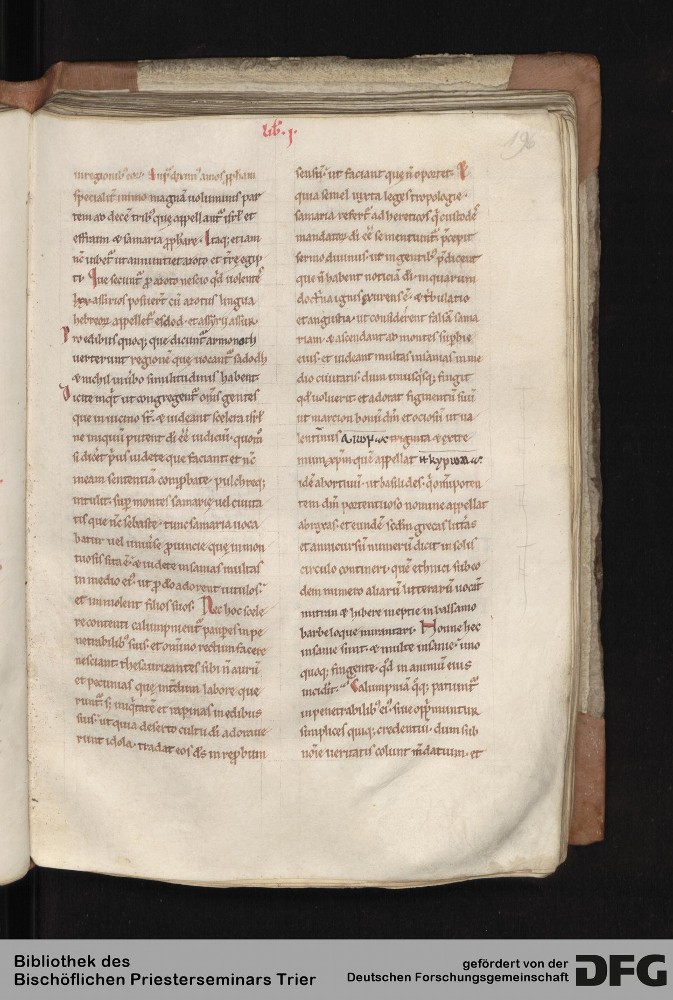 lib. j.
196
specialit̄ immo magnā uoluminis par
tem ad decē trib; que appellant̄ isrl et
effraim & samaria ꝓphare. Itaq; etiam
nc̄ iubet ut annuntiet azoto et tr̄e egip
ti. Lxx assirios posuer̄ cū azotus lingua
hebreoꝝ appellet̄ esdod. et assyrii assur.
Pro edibus quoq; que dicunt̄ armonoth
uerterunt regionē que uocant̄ sadodh
& nichil in uerbo similitudinis habent.
Dicite inqt ut congregent̄ om̄s gentes
que in uicino st̄. & uideant scelera isrl
ne iniquū putent di ēē iudiciū. quom̄
si dicet pr̄us uidete que faciant et nc̄
meam sententiā comprobate. pulchreq;
intulit. sup̄ montes samarie uel ciuita
tis que nc̄ sebaste. tunc samaria uoca
batur uel uniuse prouincie que in mon
tuosis sita ē. & uidete insanias multas
in medio ei'. ut p̄ do adorent uitulos.
et immolent filios suos. Nec hoc scele
re contenti calumpnient̄ paupes in pe
netrabilib; suis. et omnino rectum facere
nesciant. thesaurizantes sibi n̄ aurū
et pecunias que int̄dum labore que
runt̄. s; iniqtatē et rapinas in edibus
suis. ut quia deserto cultu di adoraue
runt idola. tradat eos ds̄ in reprobum
sensū. ut faciant que n̄ oportet.
quia semel iuxta leges tropologie.
samaria refert̄ ad hereticos q̄ custodes
mandatoꝝ di ēē se mentiunt̄. p̄cepit
sermo diuinus. ut in gentib; p̄dicent
que n̄ habent noticiā di. in quarum
et angustia. ut considerent falsā sama
riam. & ascendant ad montes supbie
eius. et uideant multas insanias in me
dio ciuitatis. dum unusqsq; fingit
qd uoluerit. et adorat figmentū suū.
ut marcion bonū dm̄ et ociosū. ut ua
lentinus triginta. & extre
mum xpm quē appellat
idē abortiuū. ut basilides. q̄ omipoten
tem dm̄ portentuoso nomine appellat
abraxas. et eundē scdm grecas litt̄as
et annui cursū numerū dicit in solis
circulo contineri. quē ethnici sub eo
dem numero aliarū litterarū uocāt
mitran. & hibere ineptie in balsamo
barbeloque mirantur. Nonne hec
insanie sunt. & multe insanie. uno
quoq; fingente. qd in animū eius
inciderit. Calumpniā q̄q; patiunt̄
in penetrabilib; ei'. siue opprimuntur
simplices quiq; credentiū. dum sub
noīe ueritatis colunt mdatium. et
Bibliothek des
Bischöflichen Priesterseminars Trier
gefördert von der
Deutschen Forschungsgemeinschaft
DFG